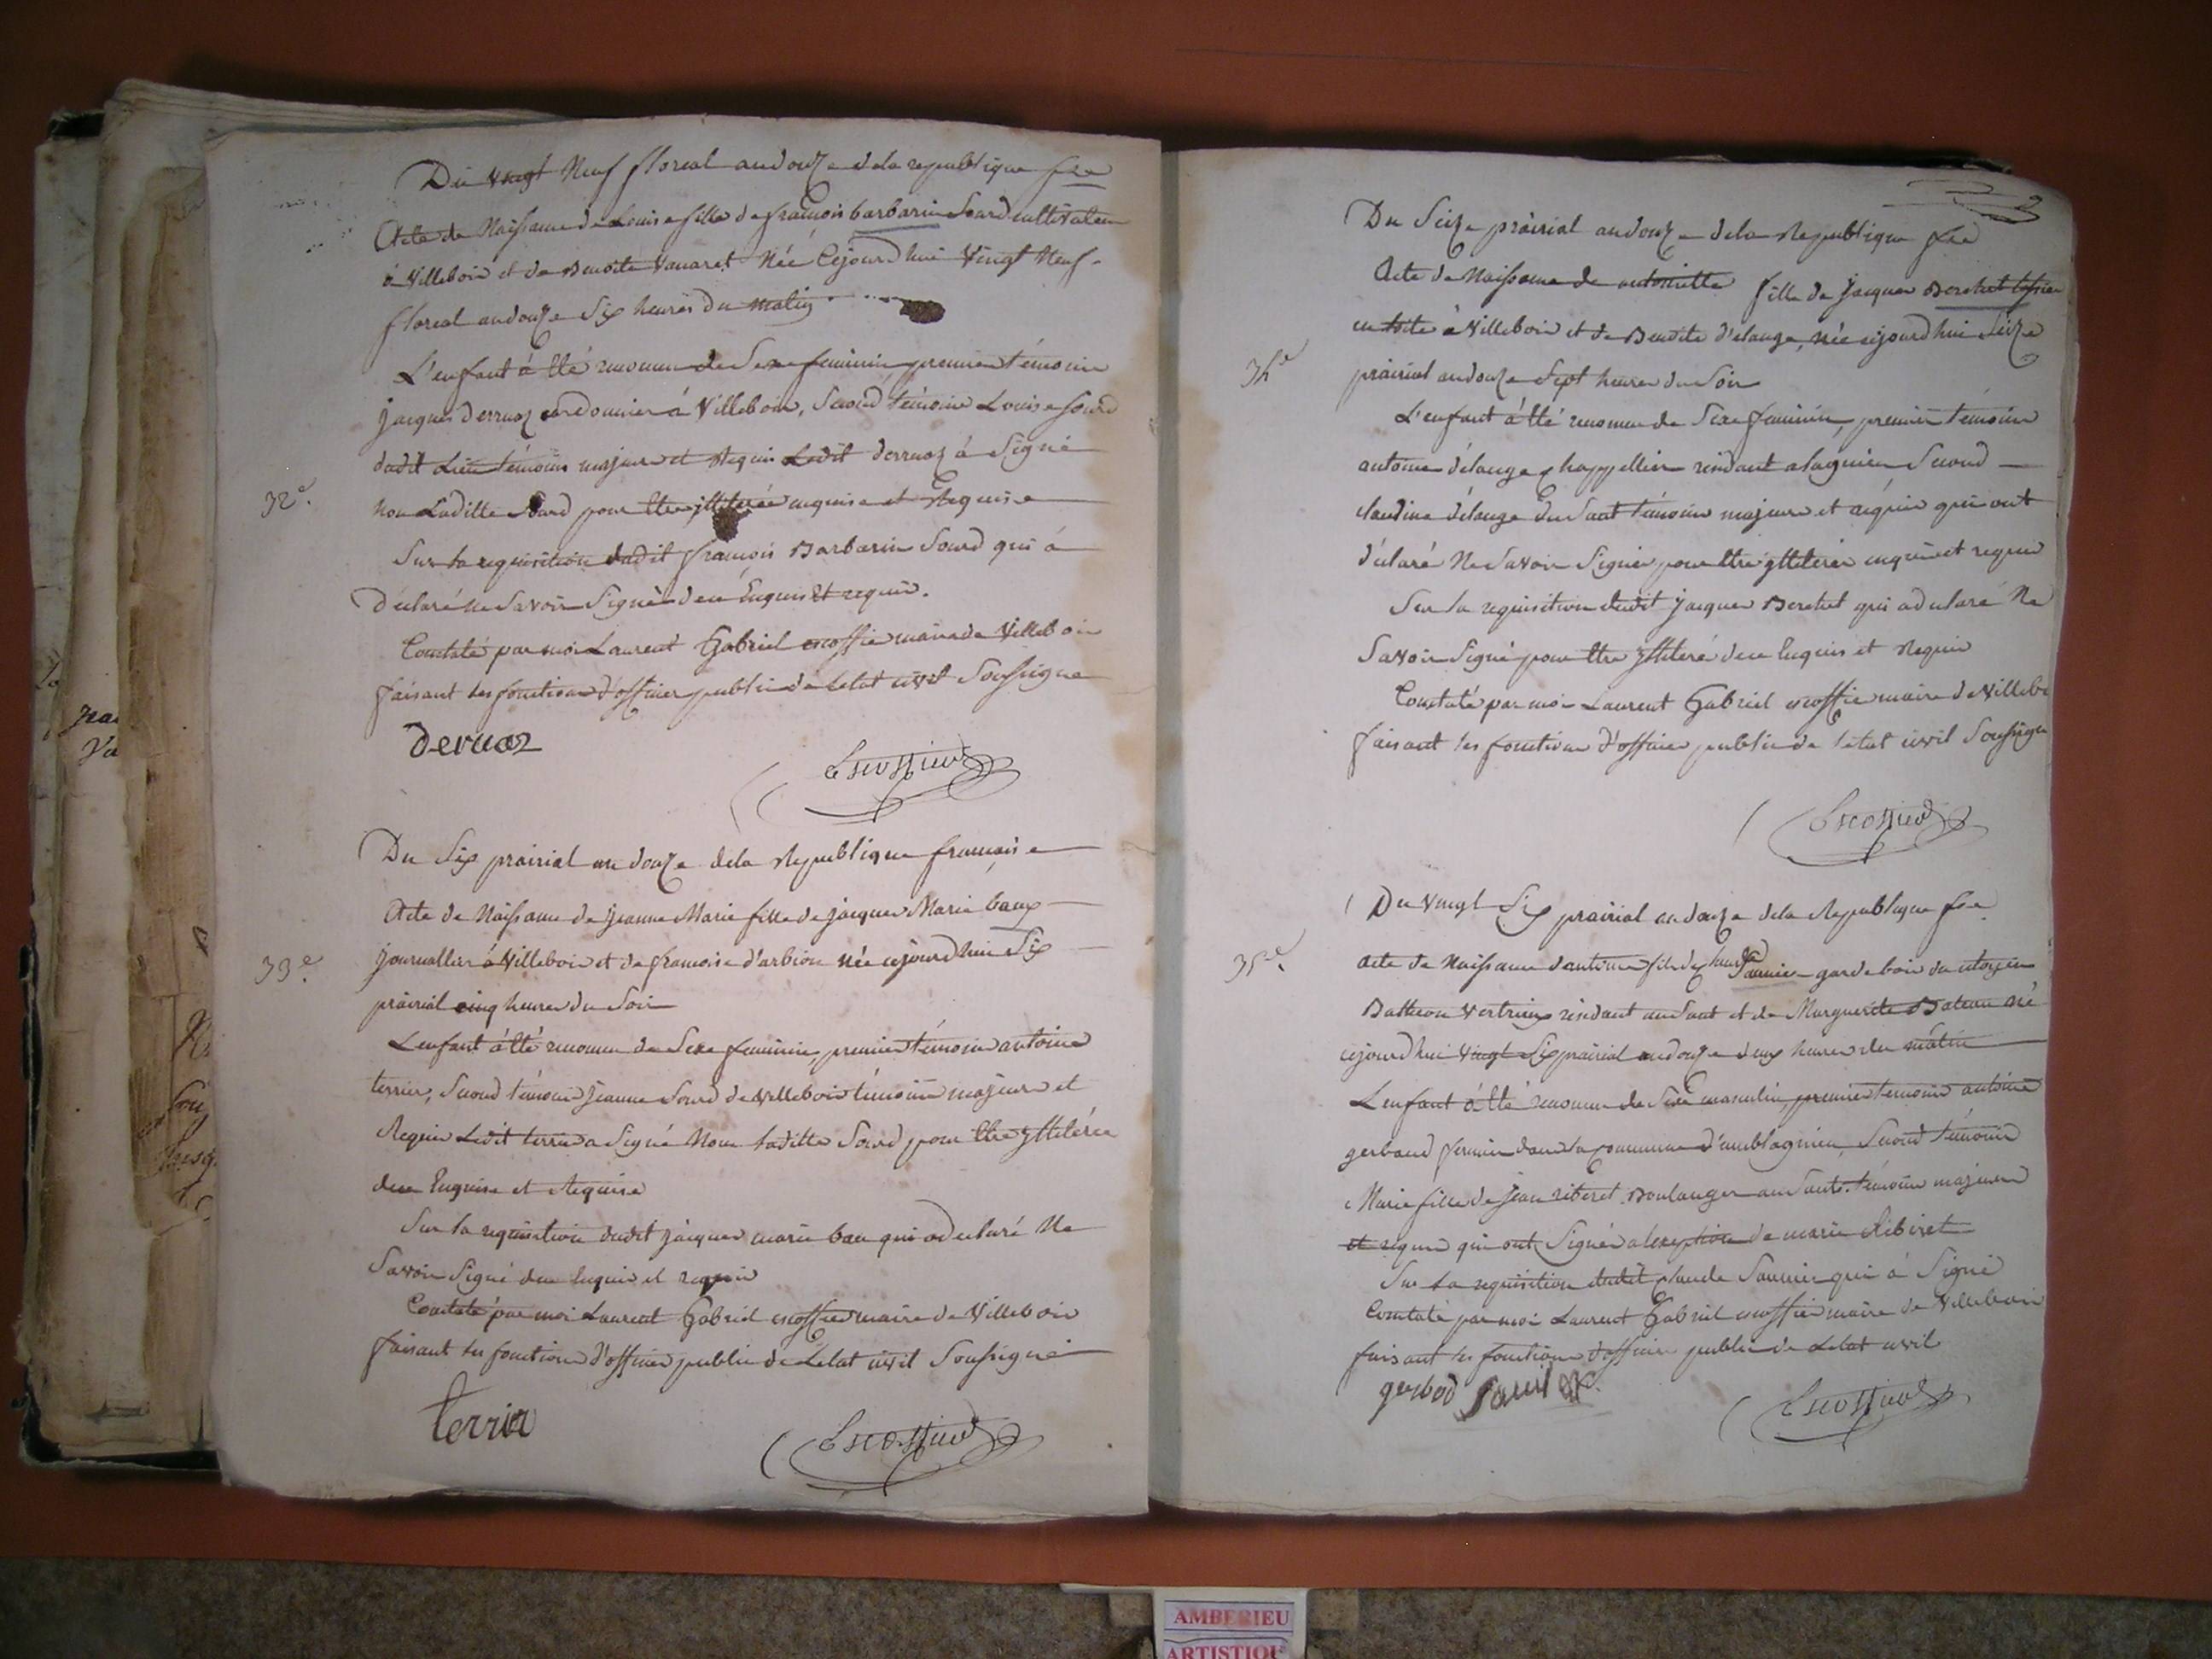 Du vingt Neuf floreal an douze de la republique fse
Acte de Naissance de Louise fille de françois barbarin Sourd cultivateur
à Villebois et de Benoite Vanaret Née Cejourdhui Vingt Neuf
floreal an douze Six heures du matin
L'enfant à été reconnu de Sexe feminin premier témoin
jacques derruaz cordonnier à Villebois, Second témoin Louise Sourd
dudit Lieu témoins majeurs et Requis Ledit derruaz à Signé
32e.
Non Laditte Sourd pour être illiterée enquise et Requise
Sur la requisition dudit françois Barbarin Sourd qui à
Déclaré ne Savoir Signer de ce Enquis et requis.
Constaté par moi Laurent Gabriel escoffier maire de Villebois
faisant les fonctions d'officier public de l'etat civil Soussigné
Deruaz
Escoffier
Du Six prairial an douze de la Republique française
Acte de Naissance de jeanne Marie fille de jacques Marie baux
33e.
journallier à Villebois et de francoise d'arbion née cejourdhui Six
prairial cinq heures du Soir
L'enfant à été reconnu de Sexe feminin, premier témoin antoine
terrier, Second témoin jeanne Sourd de Villebois témoins majeurs et
Requis Ledit terrier a Signé Non laditte Sourd pour être illiterée
de ce Enquise et Requise
Sur la requisition dudit jacques marie bau qui a declaré Ne
Savoir Signé de ce Enquis et requis
Constaté par moi Laurent Gabriel escoffier maire de Villebois
faisant les fonctions d'officier public de L'etat civil Soussigné
terrier
Escoffier
Du Seize prairial an douze de la Republique fse
Acte de Naissance de antoinette fille de jacques Berchet
à Villebois et de Benoite d'elange, née cejourdhui Seize
34e
prairial an douze Sept heures du Soir
L'enfant à été reconnu de Sexe feminin, premier témoin
antoine délange chappellier residant a lagnieu Second
claudine délange du Saut témoins majeurs et requis qui ont
déclaré Ne Savoir Signer pour être illiterés enquis et requis
Sur la requisition dudit jacques Berchet qui a declaré Ne
Savoir Signé pour être illiteré de ce Enquis et Requis
Constaté par moi Laurent Gabriel escoffier maire de Villebo
faisant les fonctions d'officier public de l'etat civil Soussigné
Escoffier
Du Vingt Six prairial an douze de la Republique fse
35e.
Acte de Naissance d'antoine fils de claude Saunier garde bois du citoyen
Vertrieux residant au Saut et de Marguerite Bateau né
cejourdhui Vingt Six prairial an douze deux heures du matin
L'enfant à été reconnu de Sexe masculin, premier témoin antoine
gerbaud fermier dans la commune d'amblagnieu, Second témoin
Marie fille de Jean riberet Boulanger au Saut témoins majeurs
et requis qui ont Signés a l'exeption de marie Ribiret
Sur la requisition dudit claude Saunier qui à Signé
Constaté par moi Laurent Gabriel escoffier maire de Villebois
faisant les fonctions d'officier public de L'etat civil
gerbod Saunier
Escoffier
AMBERIEU
ARTISTIQU